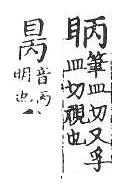 眪筆皿切又孚
皿切視也
音丙
明也